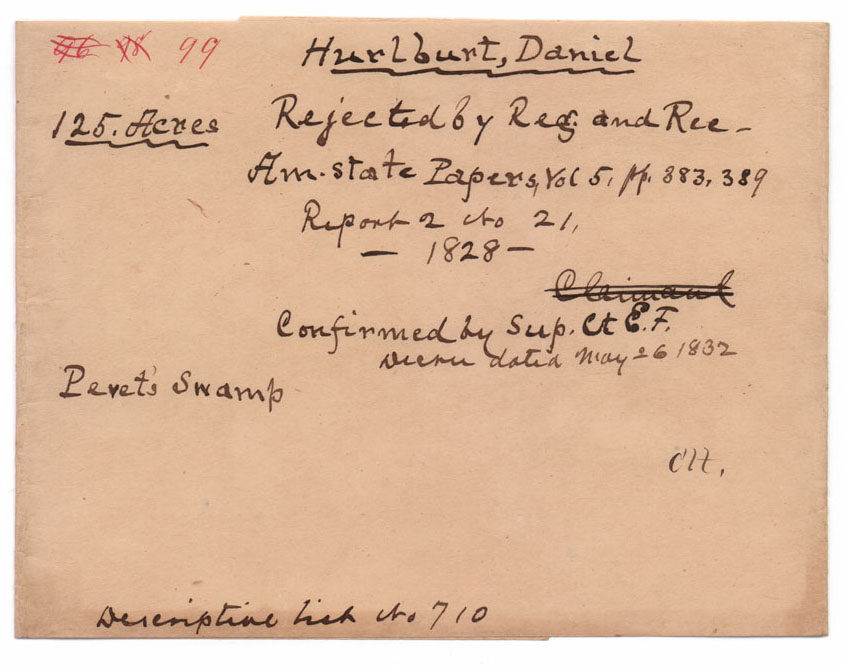 46 98 99
Hurlburt, Daniel
125. Acres
Rejected by Reg. and Rec -
Am. state Papers, Vol 5, pp. 383, 389
Report 2 No 21,
— 1828 —
Claimant
Confirmed by Sup. Ct E.F.
Decree dated May 26 1832
Peret's Swamp
Descriptive List No 710